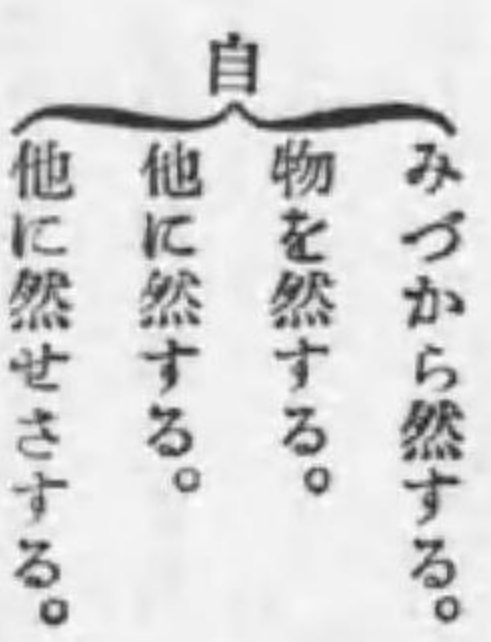 自
みづから然する。
物を然する。
他に然する。
他に然せさする。